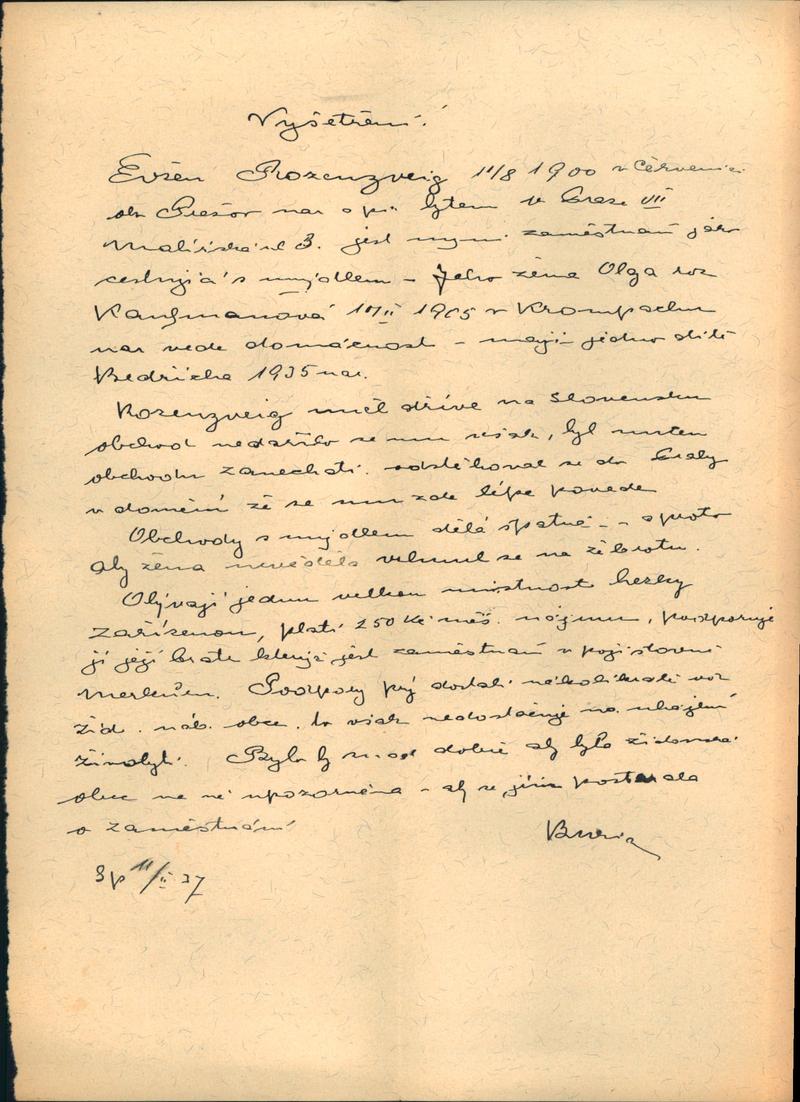 Vyšetření!
Evžen Rozenzveig 11/8 1900 v Červenici
okr Prešov nar a př. bytem v Praze VII
Malířská ul 3. jest nyní zaměstnán jako
cestující s mýdlem – Jeho žena Olga roz
Kaufmanová 1905 v Krompachu
nar vede domácnost – mají jedno dítě
Bedřicha 1935 nar.
Rozenzveig měl dříve na Slovensku
obchod nedařilo se mu však, byl nucen
obchodu zanechati. odstěhoval se do Prahy
v domění že se mu zde lépe povede
Obchody s mýdlem dělá špatné – a proto
aby žena nevěděla vrhnul se na žebrotu.
Obývají jednu velkou místnost hezky
zařízenou, platí 250 Kč měs. nájmu, podporuje
ji její bratr který jest zaměstnán v pojišťovně
Merkur. Podpory prý dostali několikráte od
žid. náb. obce. to však nedostačuje na uhájení
živobytí. Bylo by snad dobré aby byla židovská
obec na ně upozorněna – aby se jim postarala
o zaměstnání
11/II 37